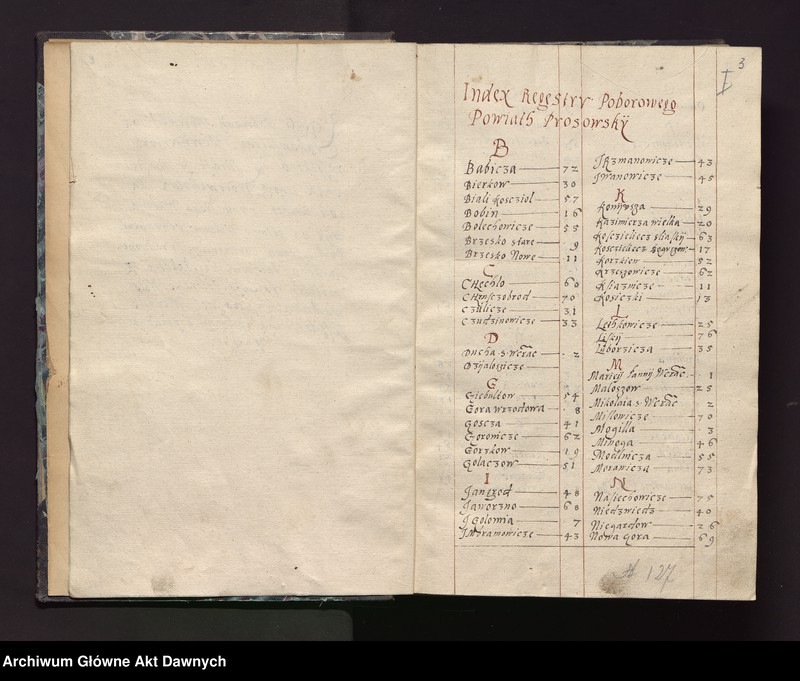 3
I
Index Regestrv Poborowego
Powiath Prosowskÿ
B
Babicza 72
Bierkow 30
Biali Kosczioł 57
Bobin 16
Bolechowicze 55
Brzesko stare 9
Brzesko Nowe 11
C
Chechlo 60
70
Czulicze 31
Czudzinowicze 33
D
Ducha S. w Crac 2
G
Giebultow 54
Gora wrzodowa 8
Goscza 41
Gorowicze 62
Gorzkow 19
Golaczow 51
I
Jangrod 48
Jaworzno 68
Igolomia 7
Imbramowicze 43
Ikzmanowicze 43
Iwanowicze 45
K
Koniusza 29
Kazimierza wielka 20
Koscielecz slaski 63
Koscielecz 17
Korzkiew 52
Krzeszowicze 62
Ksiaznicze 11
Kosiczki 13
L
Lethkowicze 25
Liszÿ 76
Luborzicza 35
M
Marieÿ Pannÿ w Crac. 1
Maloszow 25
Mikolaia S. w Crac 2
Milowicze 70
Mogilla 3
Minoga 46
Modlnicza 55
Morawicza 73
N
Nasiechowicze 75
Niedzwiedz 40
Niegardow 26
Nowa Gora 69
127
Archiwum Główne Akt Dawnych